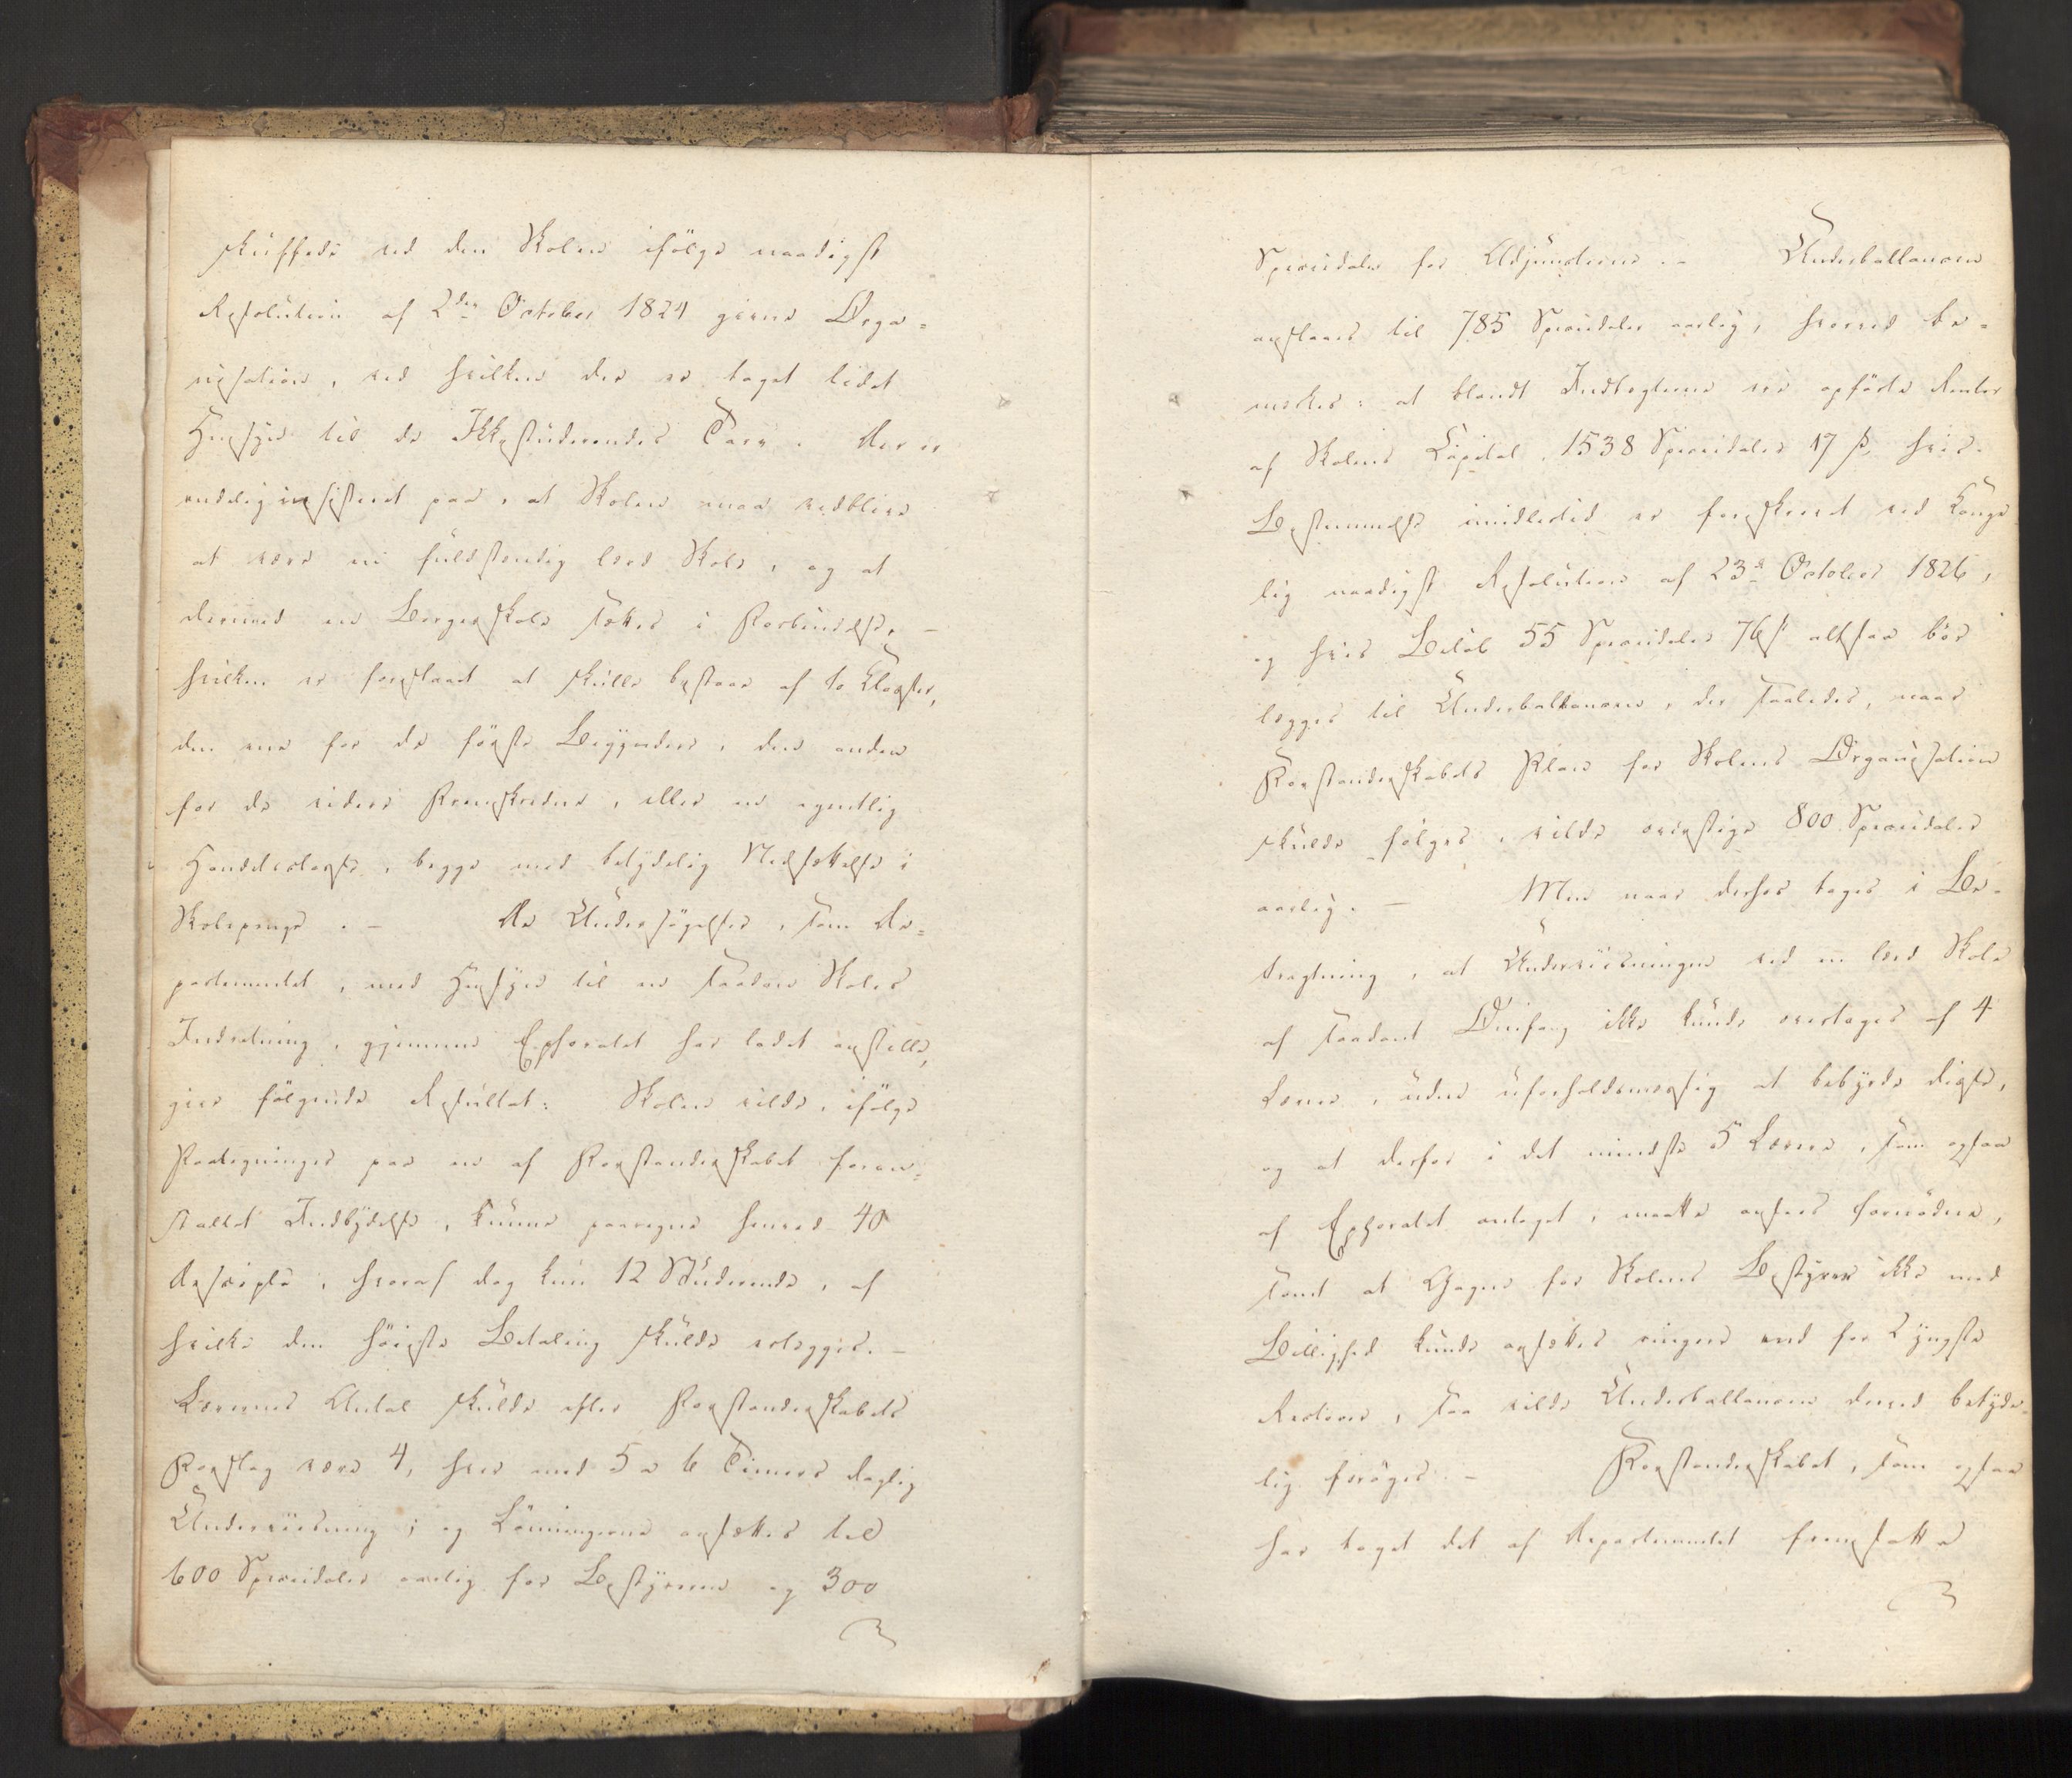 skuffede ved den Skolen ifölge naadigst
Resolution af 2den October 1824 givne Orga-
nisation, ved hvilken der er taget lidet
Hensyn til de Ikkestuderendes Tarv. Der er
endelig insisteret paa, at Skolen maa vedblive
at være en fuldstændig lærd Skole, og at
dermed en Borgerskole sættes i Forbindelse, –
hvilken er foreslaaet at skulle bestaae af to Classer,
den ene for de förste Begyndere, den anden
for de videre Fremskredne, eller en egentlig
Handelsclasse, begge med betydelig Nedsættelse i
Skolepenge. – De Undersögelser, som De-
partementet, med Hensyn til en saadan Skoles
Indretning, gjennem Ephoratet har ladet anstille,
give fölgende Resultat: Skolen vilde, ifölge
Paategninger paa en af Forstanderskabet foran-
staltet Indbydelse, kunne paaregne henved 40
Disciple, hvoraf dog kun 12 Studerende, af
hvilke den höieste Betaling skulde erlægges. –
Lærernes Antal skulde efter Forstanderskabets
Forslag være 4, hver med 5 a 6 Timers daglig
Underviisning; og Lönningerne ansættes til
600 Speciedaler aarlig for Bestyreren og 300
Speciedaler for Adjuncterne. – Underballancen
anslaaes til 785 Speciedaler aarlig, hvorved be-
mærkes: at blandt Indtægterne ere opförte Renter
af Skolens Capital, 1538 Speciedaler 17 ß, hvis
Bestemmelse imidlertid er foreskrevet ved Konge
lig naadigst Resolution af 23de October 1826,
og hvis Belöb 55 Speciedaler 76 ß altsaa bör
lægges til Underballancen, der saaledes, naar
Forstanderskabets Plan for Skolens Organisation
skulde fölges, vilde overstige 800 Speciedaler
aarlig. – Men naar derhos tages i Be-
tragtning, at Underviisningen ved en lærd Skole
af saadant Omfang ikke kunde overtages af 4
Lærere, uden uforholdsmæssig at bebyrde disse,
og at derfor i det mindste 5 Lærere, som ogsaa
af Ephoratet antaget, maatte ansees fornödne,
samt at Gagen for Skolens Bestyrer ikke med
Billighed kunde ansættes ringere end for yngste
Rectorer, saa vilde Underballancen derved betyde-
lig foröges. – Forstanderskabet, som ogsaa
har taget det af Departementet fremsatte